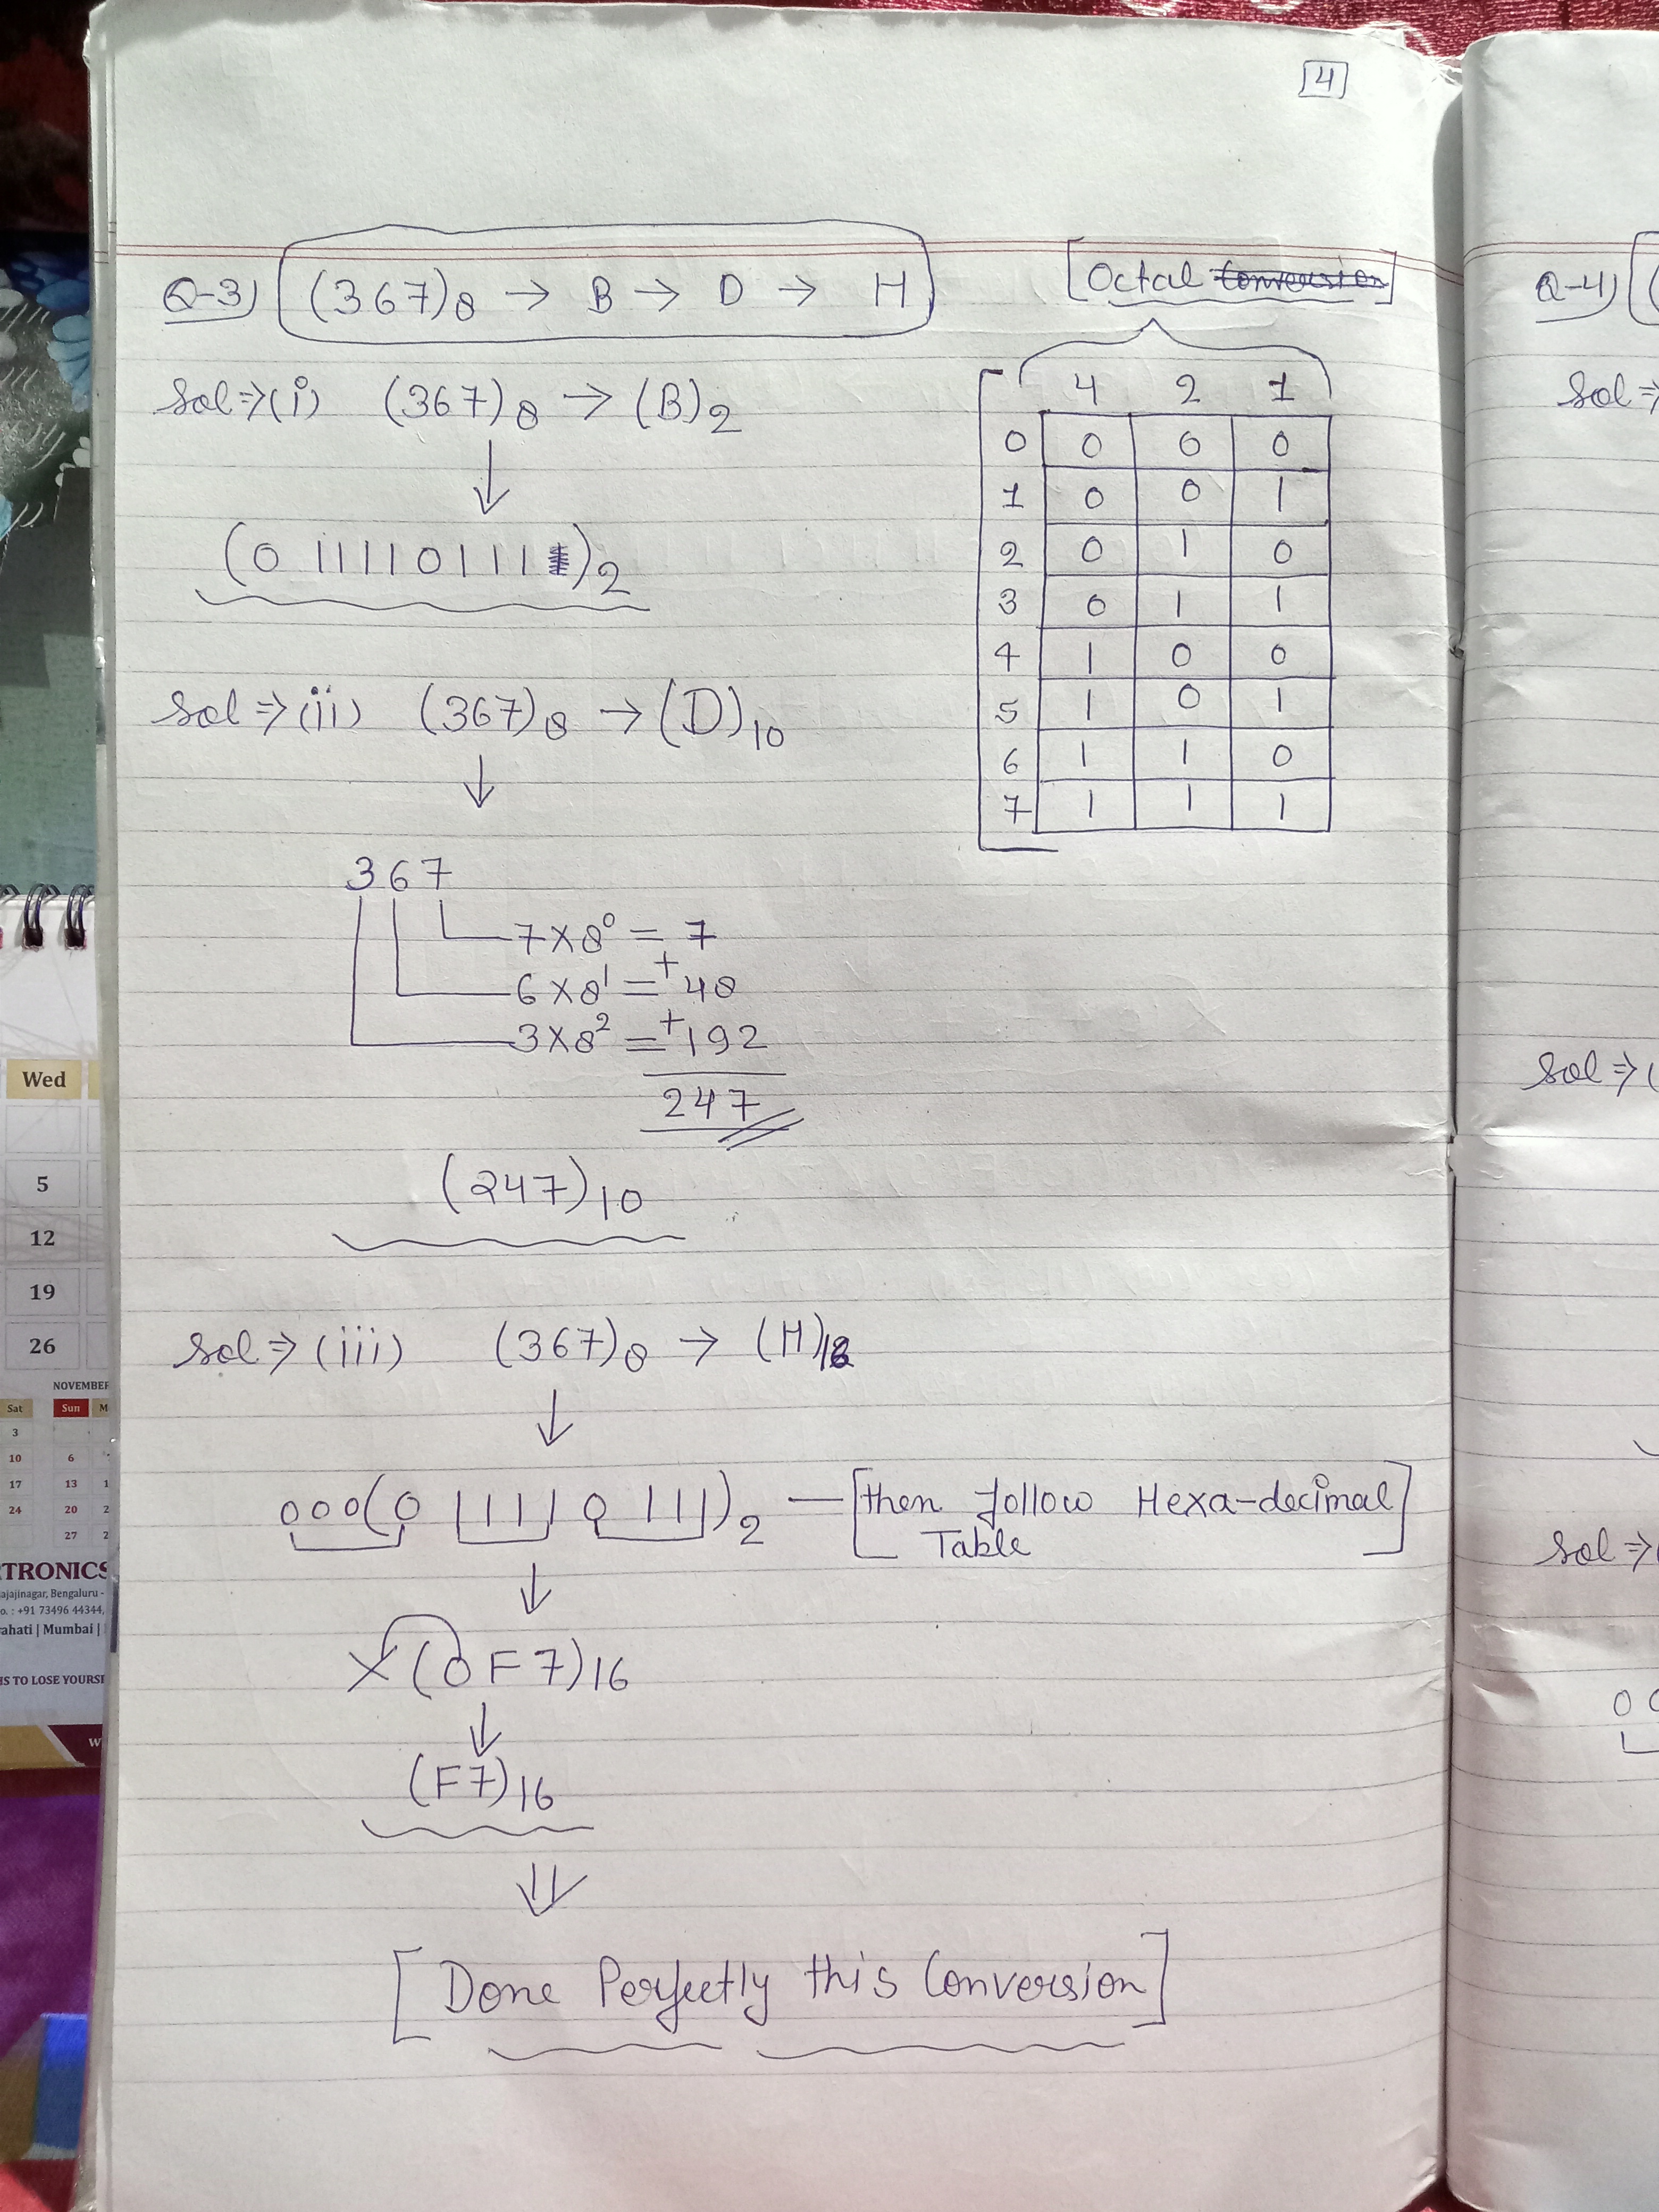 4
Q-3) (367)8 → B → D → H
[Octal Conversion]
Sol⇒(i) (367)8 → (B)2
↓
(011110111)2
4 2 1
0 0 0 0
1 0 0 1
2 0 1 0
3 0 1 1
4 1 0 0
5 1 0 1
6 1 1 0
7 1 1 1
Sol⇒(ii) (367)8 → (D)10
↓
367
7×8⁰ = 7
6×8¹ = +48
3×8² = +192
247
(247)10
Sol⇒(iii) (367)8 → (H)16
↓
000(0 1111 0111)2 — [then follow Hexa-decimal
Table]
↓
×(0F7)16
↓
(F7)16
⇓
[Done Perfectly this Conversion]
Q-4) (
Sol⇒
Sol⇒(
Sol⇒(
0 0
Wed
5
12
19
26
NOVEMBER
Sat Sun M
3
10 6
17 13 1
24 20 2
27 2
TRONICS
ajajinagar, Bengaluru -
o. : +91 73496 44344,
ahati | Mumbai |
IS TO LOSE YOURSE
W